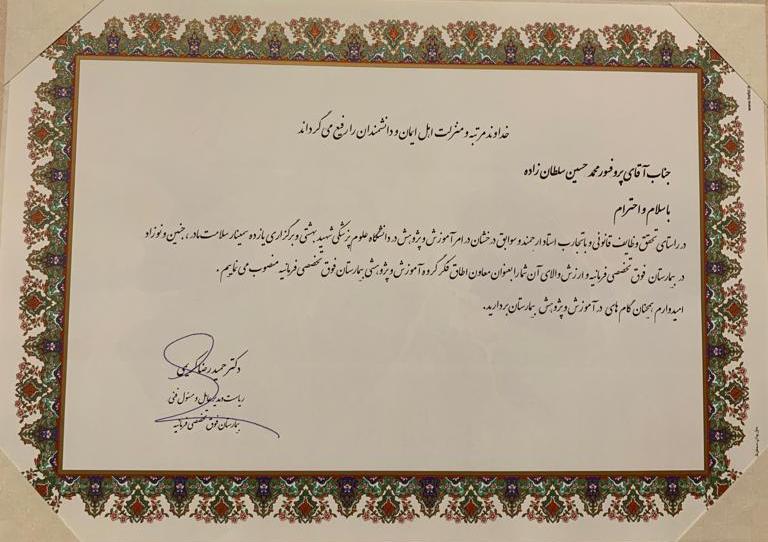 خداوند مرتبه و منزلت اهل ایمان و دانشمندان را رفیع می گرداند
جناب آقای پروفسور محمد حسین سلطان زاده
با سلام و احترام
در راستای تحقق وظایف قانونی و با تجارب استاد ارجمند و سوابق درخشان در امر آموزش و پژوهش در دانشگاه علوم پزشکی شهید بهشتی و برگزاری یازده سمینار سلامت مادر، جنین و نوزاد
در بیمارستان فوق تخصصی فرمانیه و ارزش والای آن شما را بعنوان معاون اطاق فکر گروه آموزش و پژوهشی بیمارستان فوق تخصصی فرمانیه منصوب می نمایم .
امیدوارم همچنان گام های در آموزش و پژوهش بیمارستان بردارید.
دکتر حمیدرضا کریمی
ریاست و مدیرعامل و مسئول فنی
بیمارستان فوق تخصصی فرمانیه